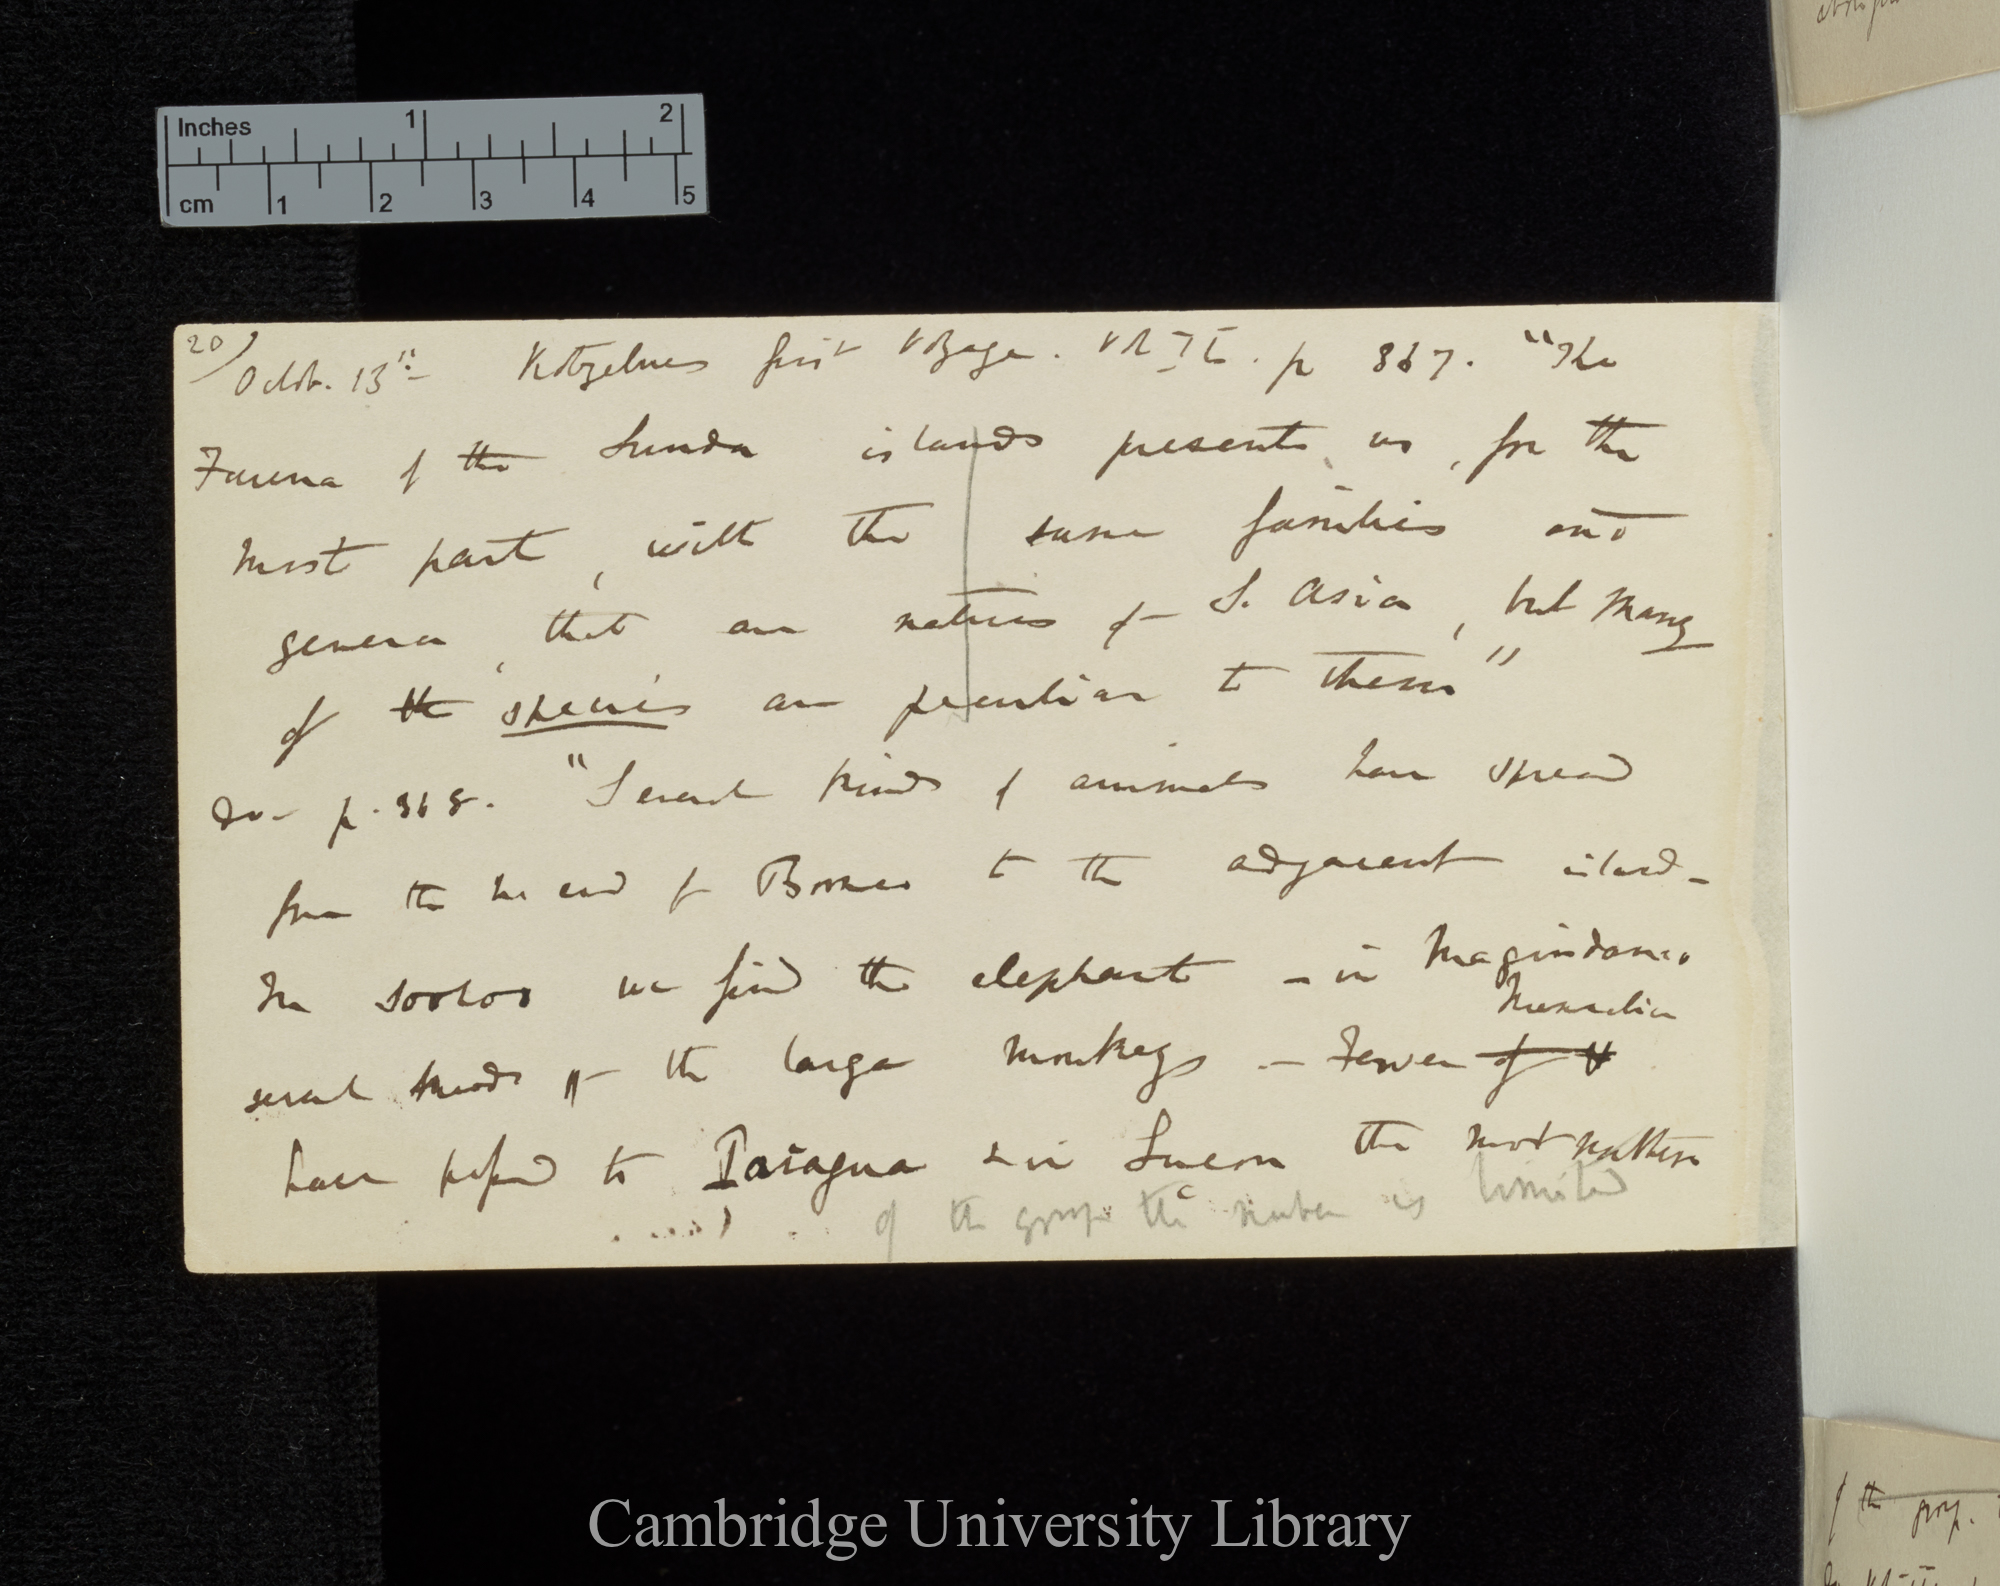 abori
Inches 1 2
cm 1 2 3 4 5
20)
Octob. 13th Kotzebues first Voyage. Vol II. p 367. "The
Fauna of the Sunda islands presents us, for the
most part, with the same families and
genera, that are natives of S. Asia, but many
of the species are peculiar to them"
do- p. 368. "Several kinds of animals have spread
from the NE end of Borneo to the adjacent island-
In Sooloo we find the elephant – in Magindanao
several kinds of the large monkeys – Fewer of
Mammalia
have passed to Paragua & in Lucon the most northern
of the group the number is limited
of the group.
Cambridge University Library